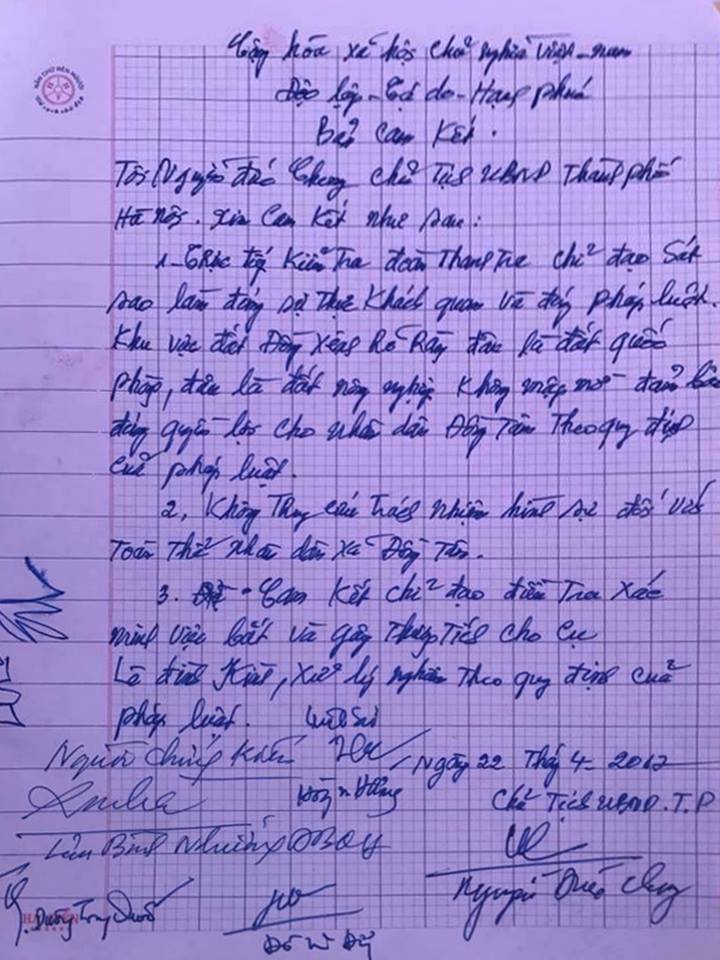 Cộng hòa xã hội chủ nghĩa việt-nam
Độc lập - Tự do - Hạnh phúc
Bản Cam Kết.
Tôi Nguyễn đức Chung chủ Tịch UBND Thành phố
Hà nội. xin Cam Kết như sau:
1- Trực tiếp Kiểm Tra đoàn Thanh Tra chỉ đạo Sát
sao làm đúng sự Thực Khách quan và đúng pháp luật.
Khu vực đất Đồng Xênh Rõ Ràng đâu là đất quốc
phòng, đâu là đất nông nghiệp không mập mờ đảm bảo
đúng quyền lợi cho nhân dân Đồng Tâm Theo quy định
của pháp luật.
2, Không Truy cứu trách nhiệm hình sự đối với
Toàn Thể nhân dân xã Đồng Tâm.
3. Cam Kết chỉ đạo điều Tra Xác
minh việc bắt và gây Thương Tích cho Cụ
Lê đình Kình, xử lý nghiêm Theo quy định của
pháp luật.
Người chứng Kiến
Ngày 22 Thág 4- 2017
Chủ Tịch UBND.T.P
Lưu Bình Nhưỡng ĐBQH
Nguyễn Đức Chung
Dương Trung Quốc